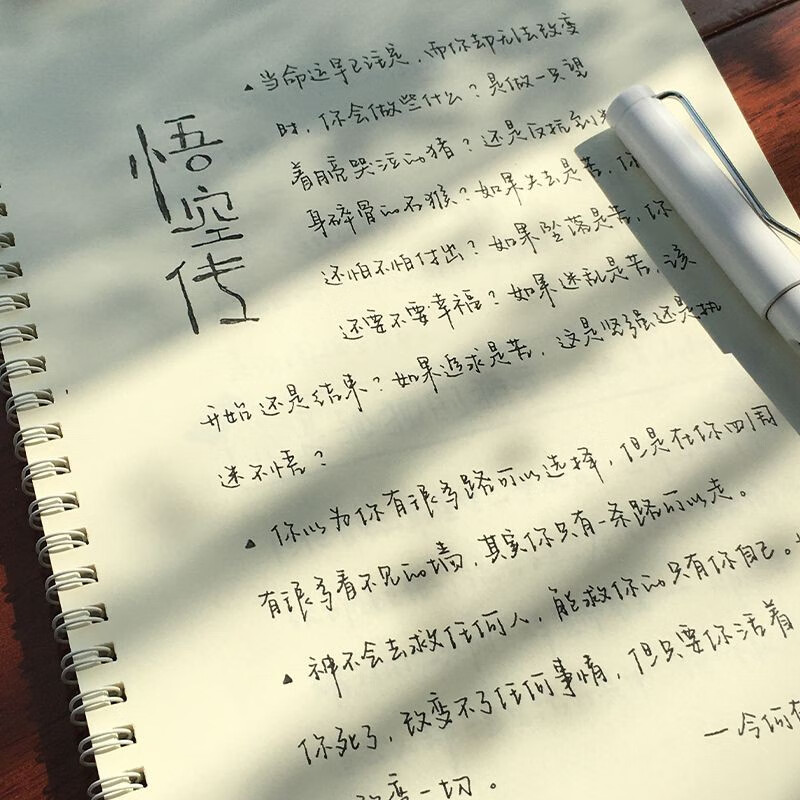 悟空传
▲当命运早已注定，而你却无法改变
时，你会做些什么？是做一只望
着月亮哭泣的猪？还是反抗到
身碎骨的石猴？如果失去是苦，你
还怕不怕付出？如果坠落是苦，你
还要不要幸福？如果迷乱是苦，该
开始还是结束？如果追求是苦，这是坚强还是执
迷不悟？
▲你以为你有很多路可以选择，但是在你四周
有很多看不见的墙，其实你只有一条路可以走。
▲神不会去救任何人，能救你的只有你自己。
你死了，改变不了任何事情，但只要你活着
—今何在
改变一切。